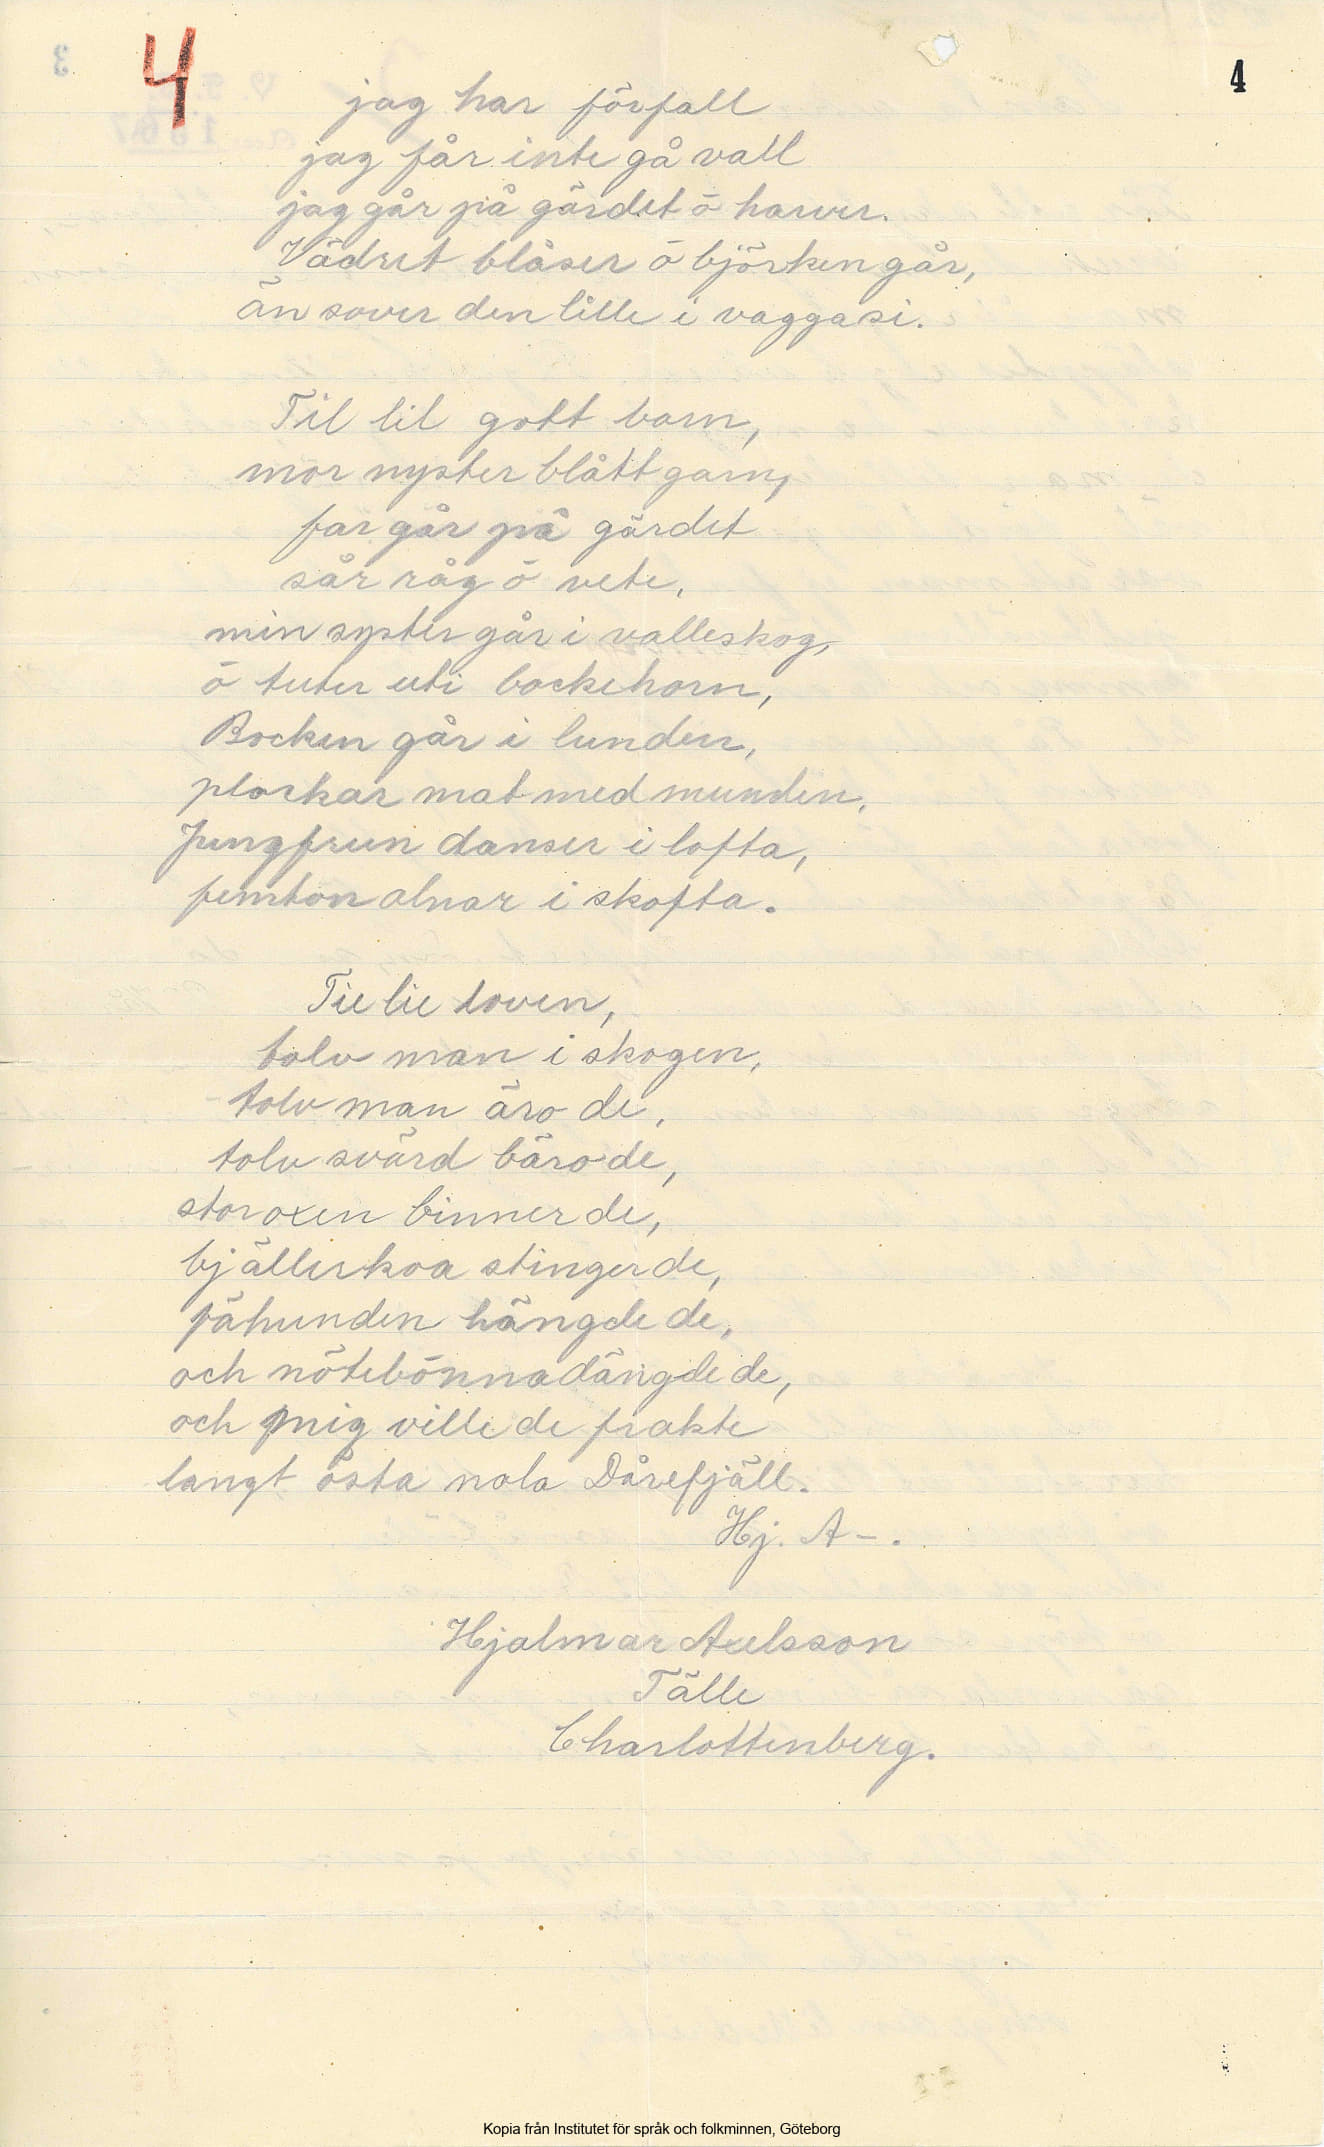 4
4
jag har förfall
jag får inte gå vall
jag går på gärdet ö harver.
Vädret blåser ö björken går,
än sover den lille i vaggasi.
Til lil gott barn,
mor nyster blått garn,
far går på gärdet
sår råg ö vete,
min syster går i valleskog,
ö tuter uti bockehorn,
Bocken går i lunden,
plockar mat med munden.
Jungfrun danser i lofta,
femton alnar i skofta.
Tie lie toven,
tolv man i skogen,
tolv man äro de,
tolv svärd bäro de,
storoxen binner de,
bjällerkoa stinger de,
fähunden hängde de,
och nötebönna dängde de,
och mig ville de frakte
langt östa nola Dårefjäll.
Hj. A-.
Hjalmar Axelsson
Tälle
Charlottenberg.
Kopia från Institutet för språk och folkminnen, Göteborg